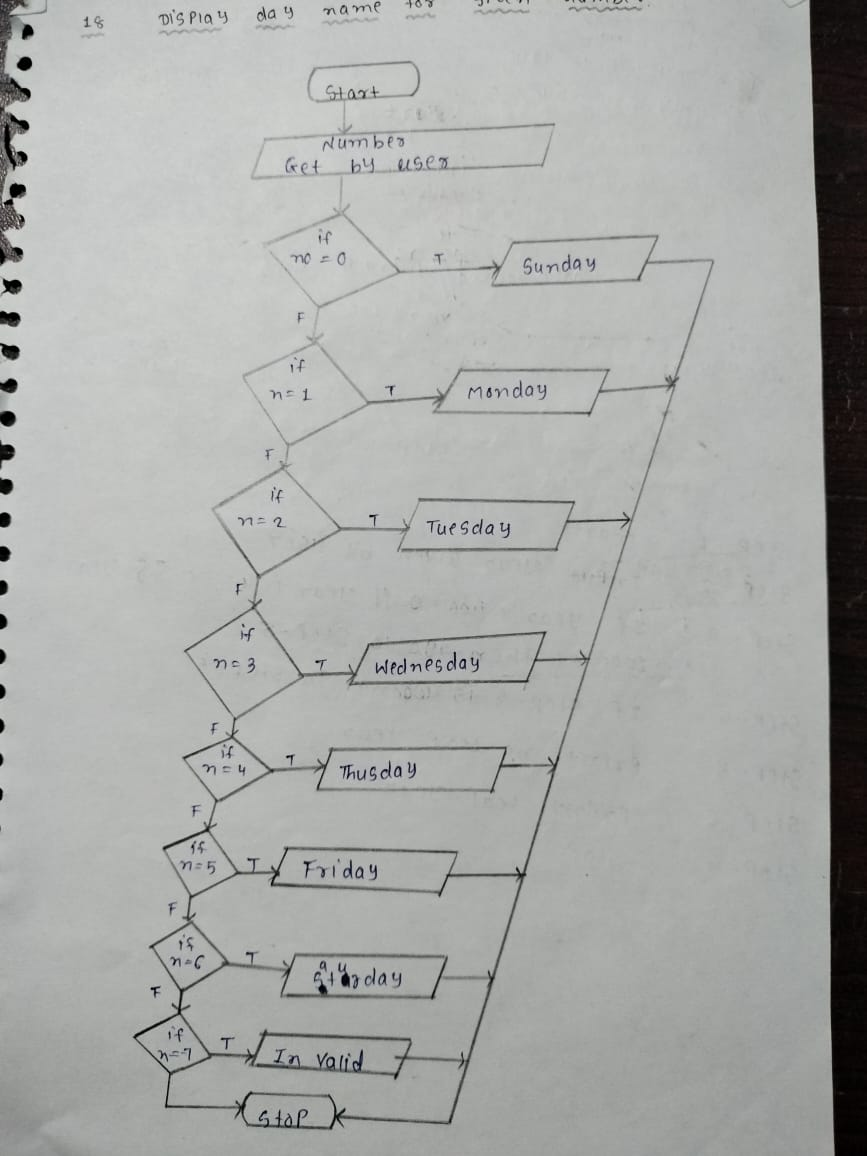 18 Display day name for given number.
Start
Number
Get by user
if
no = 0
T
Sunday
F
if
n = 1
T
Monday
F
if
n = 2
T
Tuesday
F
if
n = 3
T
Wednesday
F
if
n = 4
T
Thusday
F
if
n = 5
T
Friday
F
if
n = 6
T
Saturday
F
if
n = 7
T
In valid
Stop